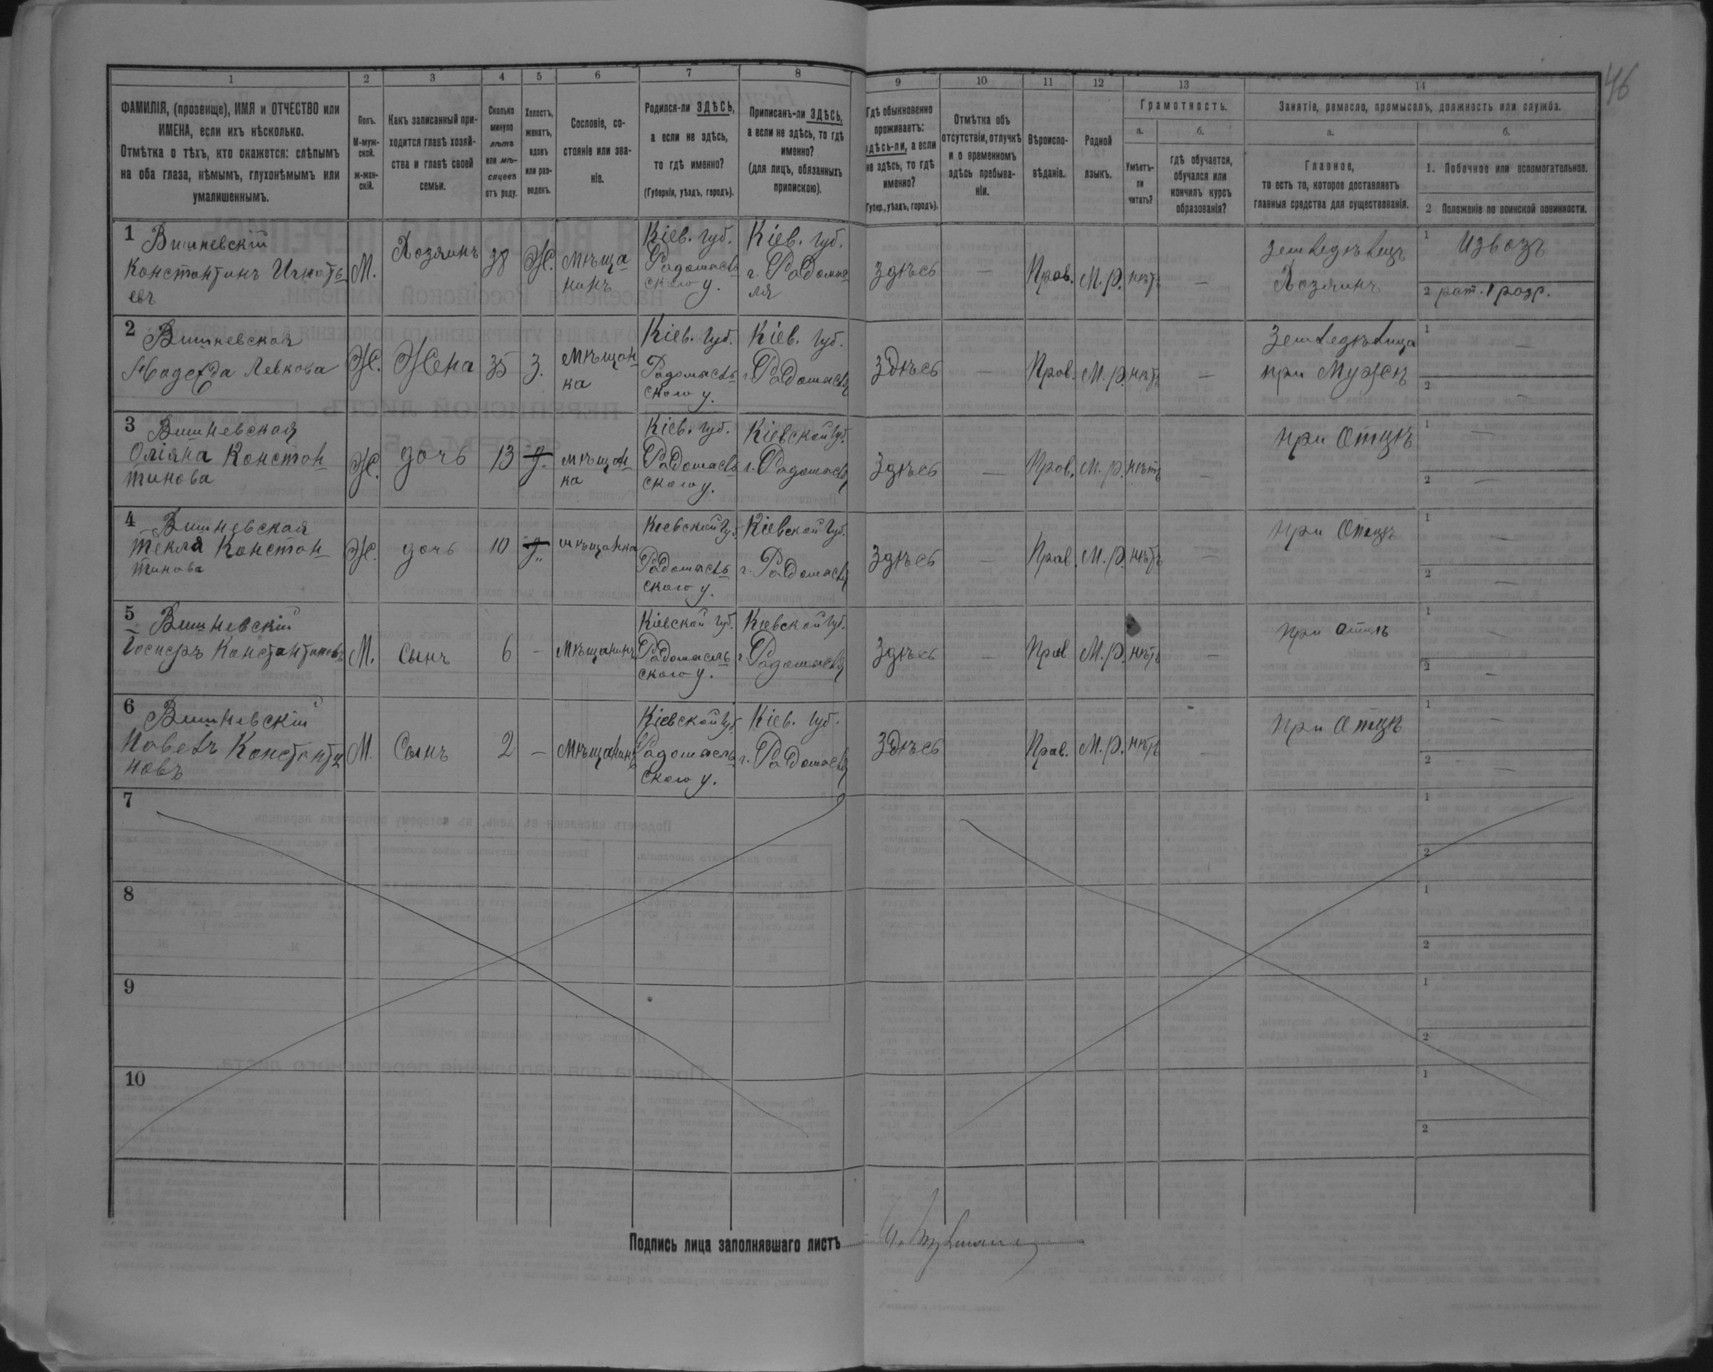 46
1 2 3 4 5 6 7 8 9 10 11 12 13 14
ФАМИЛІЯ, (прозвище), ИМЯ и ОТЧЕСТВО или
ИМЕНА, если ихъ нѣсколько.
Отмѣтка о тѣхъ, кто окажется: слѣпымъ
на оба глаза, нѣмымъ, глухонѣмымъ или
умалишеннымъ.
Полъ.
М-муж-
ской.
ж-жен-
скій.
Какъ записанный при-
ходится главѣ хозяй-
ства и главѣ своей
семьи.
Сколько
минуло
лѣтъ
или мѣ-
сяцевъ
отъ роду.
Холостъ,
женатъ,
вдовъ
или раз-
веденъ.
Сословіе, со-
стояніе или зва-
ніе.
Родился-ли ЗДѢСЬ,
а если не здѣсь,
то гдѣ именно?
(Губернія, уѣздъ, городъ).
Приписанъ-ли ЗДѢСЬ,
а если не здѣсь, то гдѣ
именно?
(для лицъ, обязанныхъ
припискою).
Гдѣ обыкновенно
проживаетъ:
здѣсь-ли, а если
не здѣсь, то гдѣ
именно?
(Губер., уѣздъ, городъ).
Отмѣтка объ
отсутствіи, отлучкѣ
и о временномъ
здѣсь пребыва-
ніи.
Вѣроиспо-
вѣданіе.
Родной
языкъ.
Грамотность.
а.
Умѣетъ-
ли
читать?
б.
гдѣ обучается,
обучался или
кончилъ курсъ
образованія?
Занятіе, ремесло, промыселъ, должность или служба.
а.
Главное,
то есть то, которое доставляетъ
главныя средства для существованія.
б.
1. Побочное или вспомогательное.
2 Положеніе по воинской повинности.
1 Вишневскій
Константинъ Игнатъ
евъ
М.
Хозяинъ
38
Ж.
мѣща
нинъ
Кіев. губ.
Радомысль
ского у.
Кіев. губ.
г. Радомыс
ля
здѣсь
—
Прав.
М. р.
нѣтъ
—
земледѣлецъ
Хозяинъ
1 Извозъ
2 рат. 1 разр.
2 Вишневская
Надежда Левкова
Ж.
Жена
35
З.
мѣщан
ка
Кіев. губ.
Радомысль
ского у.
Кіев. губ.
г. Радомысля
здѣсь
—
Прав.
М. р.
нѣтъ
—
земледѣлица
при Мужѣ
1 —
2 —
3 Вишневская
Оліяна Констан
тинова
Ж.
дочь
13
мѣщан
ка
Кіев. губ.
Радомысль
ского у.
Кіевской губ.
г. Радомысля
здѣсь
—
Прав.
М. р.
нѣтъ
—
при Отцѣ
1 —
2 —
4 Вишневская
Текля Констан
тинова
Ж.
дочь
10
мѣщанка
Кіевской гу.
Радомысль
ского у.
Кіевской губ.
г. Радомысля
здѣсь
—
Прав.
М. р.
нѣтъ
—
при Отцѣ
1 —
2 —
5 Вишневскій
Константиновъ
М.
Сынъ
6
—
мѣщанинъ
Кіевской губ.
Радомысль
ского у.
Кіевской губ.
г. Радомысля
здѣсь
—
Прав
М. р.
нѣтъ
—
при отцѣ
1 —
2 —
6 Вишневскій
Павелъ Константи
новъ
М.
Сынъ
2
—
мѣщанинъ
Кіевской гу.
Радомысль
ского у.
Кіев. губ.
г. Радомысля
здѣсь
Прав.
М. р.
нѣтъ
—
при Отцѣ
1 —
2 —
7
1
2
8
1
2
9
1
2
10
1
2
Подпись лица заполнявшаго листъ